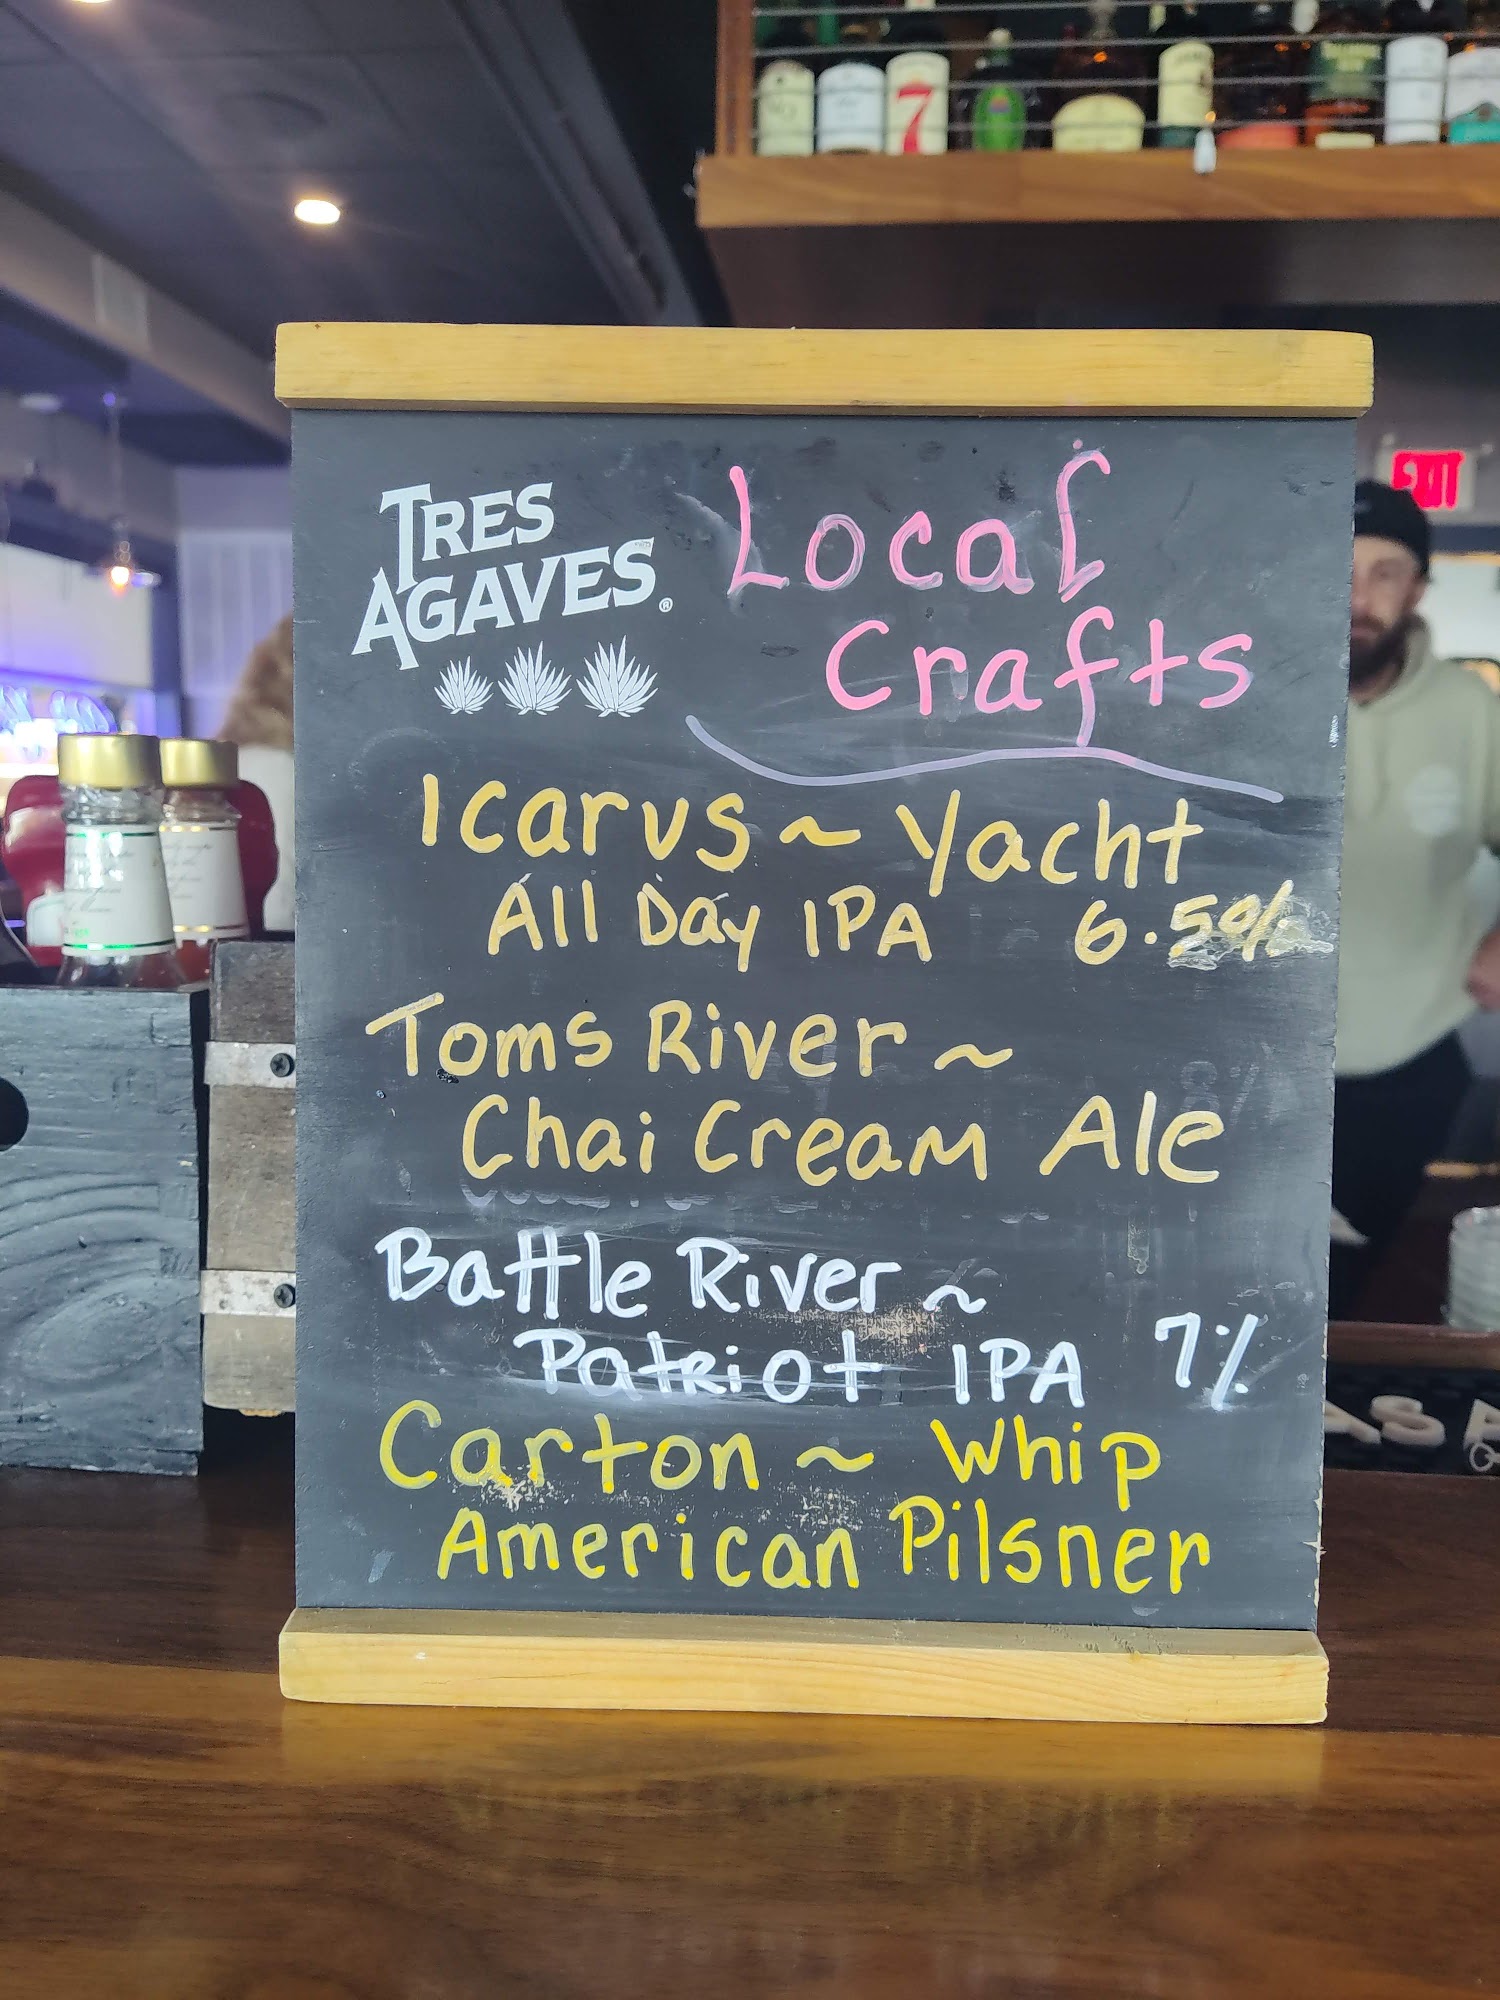 TRES
AGAVES®
Local
Crafts
Icarus ~ Yacht
All Day IPA 6.5%
Toms River ~
Chai Cream Ale
Battle River ~
Patriot IPA 7%
Carton ~ Whip
American Pilsner
EXIT
7